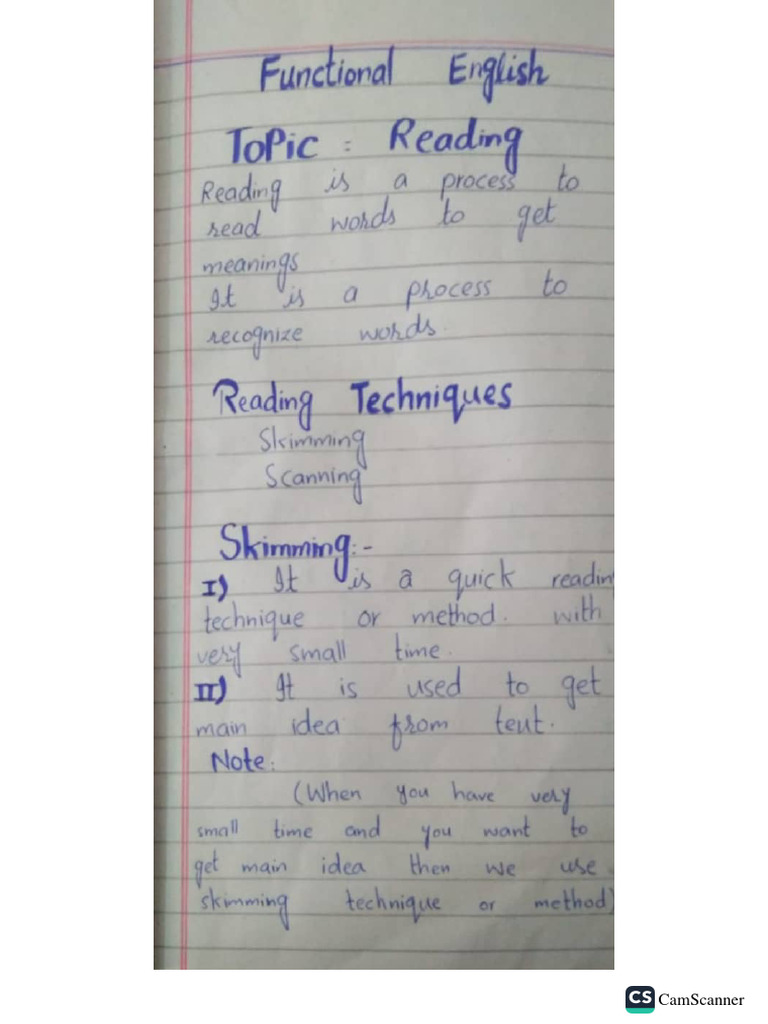 Functional English
Topic : Reading
Reading is a process to
read words to get
meanings
It is a process to
recognize words.
Reading Techniques
Skimming
Scanning
Skimming:-
I) It is a quick readin
technique or method. with
very small time.
II) It is used to get
main idea from teut.
Note:
(When you have very
small time and you want to
get main idea then we use
skimming technique or method)
CS CamScanner